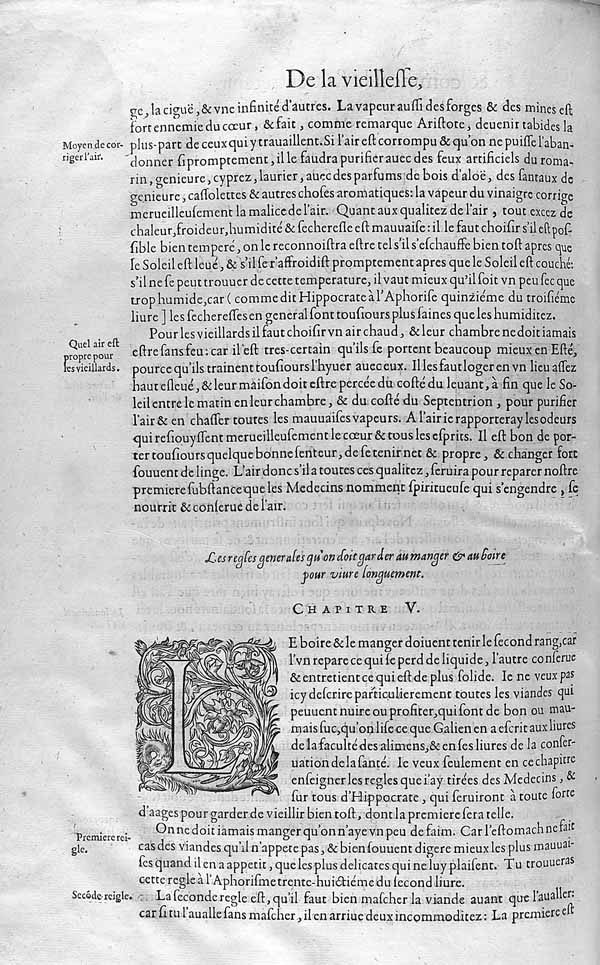 De la vieilleſſe,
ge, la ciguë, & vne infinité d'autres. La vapeur auſſi des forges & des mines eſt
fort ennemie du cœur, & fait, comme remarque Ariſtote, deuenir tabides la
Moyen de cor-
riger l'air.
plus-part de ceux qui y trauaillent. Si l'air eſt corrompu & qu'on ne puiſſe l'aban-
donner ſi promptement, il le faudra purifier auec des feux artificiels du roma-
rin, genieure, cyprez, laurier, auec des parfums de bois d'aloë, des ſantaux de
genieure, caſſolettes & autres choſes aromatiques: la vapeur du vinaigre corrige
merueilleuſement la malice de l'air. Quant aux qualitez de l'air, tout excez de
chaleur, froideur, humidité & ſechereſſe eſt mauuaiſe: il le faut choiſir s'il eſt poſ-
ſible bien temperé, on le reconnoiſtra eſtre tel s'il s'eſchauffe bien toſt apres que
le Soleil eſt leué, & s'il ſe r'affroidiſt promptement apres que le Soleil eſt couché:
s'il ne ſe peut trouuer de cette temperature, il vaut mieux qu'il ſoit vn peu ſec que
trop humide, car ( comme dit Hippocrate à l'Aphoriſe quinziéme du troiſiéme
liure ] les ſechereſſes en general ſont touſiours plus ſaines que les humiditez.
Quel air eſt
propre pour
les vieillards.
Pour les vieillards il faut choiſir vn air chaud, & leur chambre ne doit iamais
eſtre ſans feu: car il eſt tres-certain qu'ils ſe portent beaucoup mieux en Eſté,
pource qu'ils trainent touſiours l'hyuer auec eux. Il les faut loger en vn lieu aſſez
haut eſleué, & leur maiſon doit eſtre percée du coſté du leuant, à fin que le So-
leil entre le matin en leur chambre, & du coſté du Septentrion, pour purifier
l'air & en chaſſer toutes les mauuaiſes vapeurs. A l'air ie rapporteray les odeurs
qui reſiouyſſent merueilleuſement le cœur & tous les eſprits. Il eſt bon de por-
ter touſiours quelque bonne ſenteur, de ſe tenir net & propre, & changer fort
ſouuent de linge. L'air donc s'il a toutes ces qualitez, ſeruira pour reparer noſtre
premiere ſubſtance que les Medecins nomment ſpiritueuſe qui s'engendre, ſe
nourrit & conſerue de l'air.
Les regles generales qu'on doit garder au manger & au boire
pour viure longuement.
CHAPITRE V.
LE boire & le manger doiuent tenir le ſecond rang, car
l'vn repare ce qui ſe perd de liquide, l'autre conſerue
& entretient ce qui eſt de plus ſolide. Ie ne veux pas
icy deſcrire particulierement toutes les viandes qui
peuuent nuire ou profiter, qui ſont de bon ou mau-
mais ſuc, qu'on liſe ce que Galien en a eſcrit aux liures
de la faculté des alimens, & en ſes liures de la conſer-
uation de la ſanté. Ie veux ſeulement en ce chapitre
enſeigner les regles que i'ay tirées des Medecins, &
ſur tous d'Hippocrate, qui ſeruiront à toute ſorte
d'aages pour garder de vieillir bien toſt, dont la premiere ſera telle.
Premiere rei-
gle.
On ne doit iamais manger qu'on n'aye vn peu de faim. Car l'eſtomach ne fait
cas des viandes qu'il n'appete pas, & bien ſouuent digere mieux les plus mauuai-
ſes quand il en a appetit, que les plus delicates qui ne luy plaiſent. Tu trouueras
cette regle à l'Aphoriſme trente-huictiéme du ſecond liure.
Secõde reigle.
La ſeconde regle eſt, qu'il faut bien maſcher la viande auant que l'aualler:
car ſi tu l'aualle ſans maſcher, il en arriue deux incommoditez: La premiere eſt